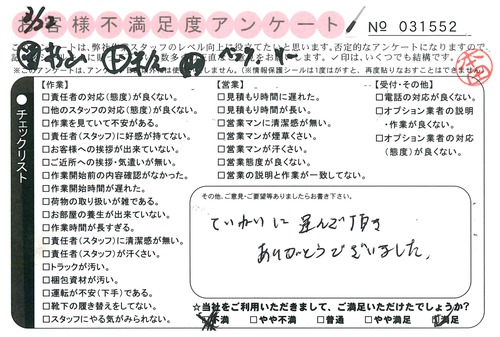 お客様不満足度アンケート
№ 031552
記
※このアンケートは、
(※情報保護シールは1度がすと、再度貼りなおすことはできません。)
チェックリスト
【作業】
□責任者の対応(態度)が良くない。
□他のスタッフの対応(態度)が良くない。
□作業を見ていて不安がある。
□責任者(スタッフ)に好感が持てない。
□お客様への挨拶が出来ていない。
□ご近所への挨拶・気遣いが無い。
□作業開始前の内容確認がなかった。
□作業開始時間が遅れた。
□荷物の取り扱いが雑である。
□お部屋の養生が出来ていない。
□作業時間が長すぎる。
□責任者(スタッフ)に清潔感が無い。
□責任者(スタッフ)が汗くさい。
□トラックが汚い。
□梱包資材が汚い。
□運転が不安(下手)である。
□靴下の履き替えをしてない。
□スタッフにやる気がみられない。
【営業】
□見積もり時間に遅れた。
□見積もり時間が長い。
□営業マンに清潔感が無い。
□営業マンが煙草くさい。
□営業マンが汗くさい。
□営業態度が良くない。
□営業の説明と作業が一致してない。
【受付・その他】
□電話の対応が良くない。
□オプション業者の説明
・作業が良くない。
□オプション業者の対応
(態度)が良くない。
その他、ご意見・ご要望等ありましたらお書き下さい。
ていねいに運んで頂き
ありがとうございました。
☆当社をご利用いただきまして、ご満足いただけたでしょうか?
□不満 □やや不満 □普通 □やや満足 □満足